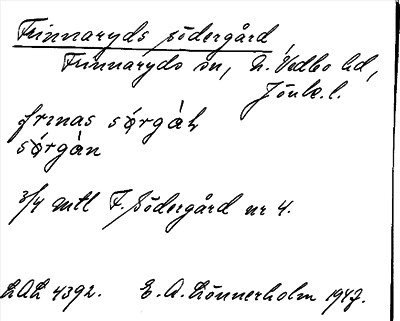 Frinnaryds södergård
Frinnaryds sn, N. Vedbo hd,
Jönk. l.
frınas sǿrgàɫ
sǿrgàn
3/4 mtl F. Södergård nr 4.
LAL 4392. E. A. Lönnerholm 1947.